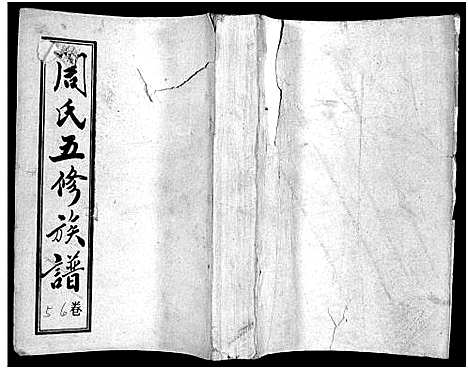 周氏五修族譜
卷56